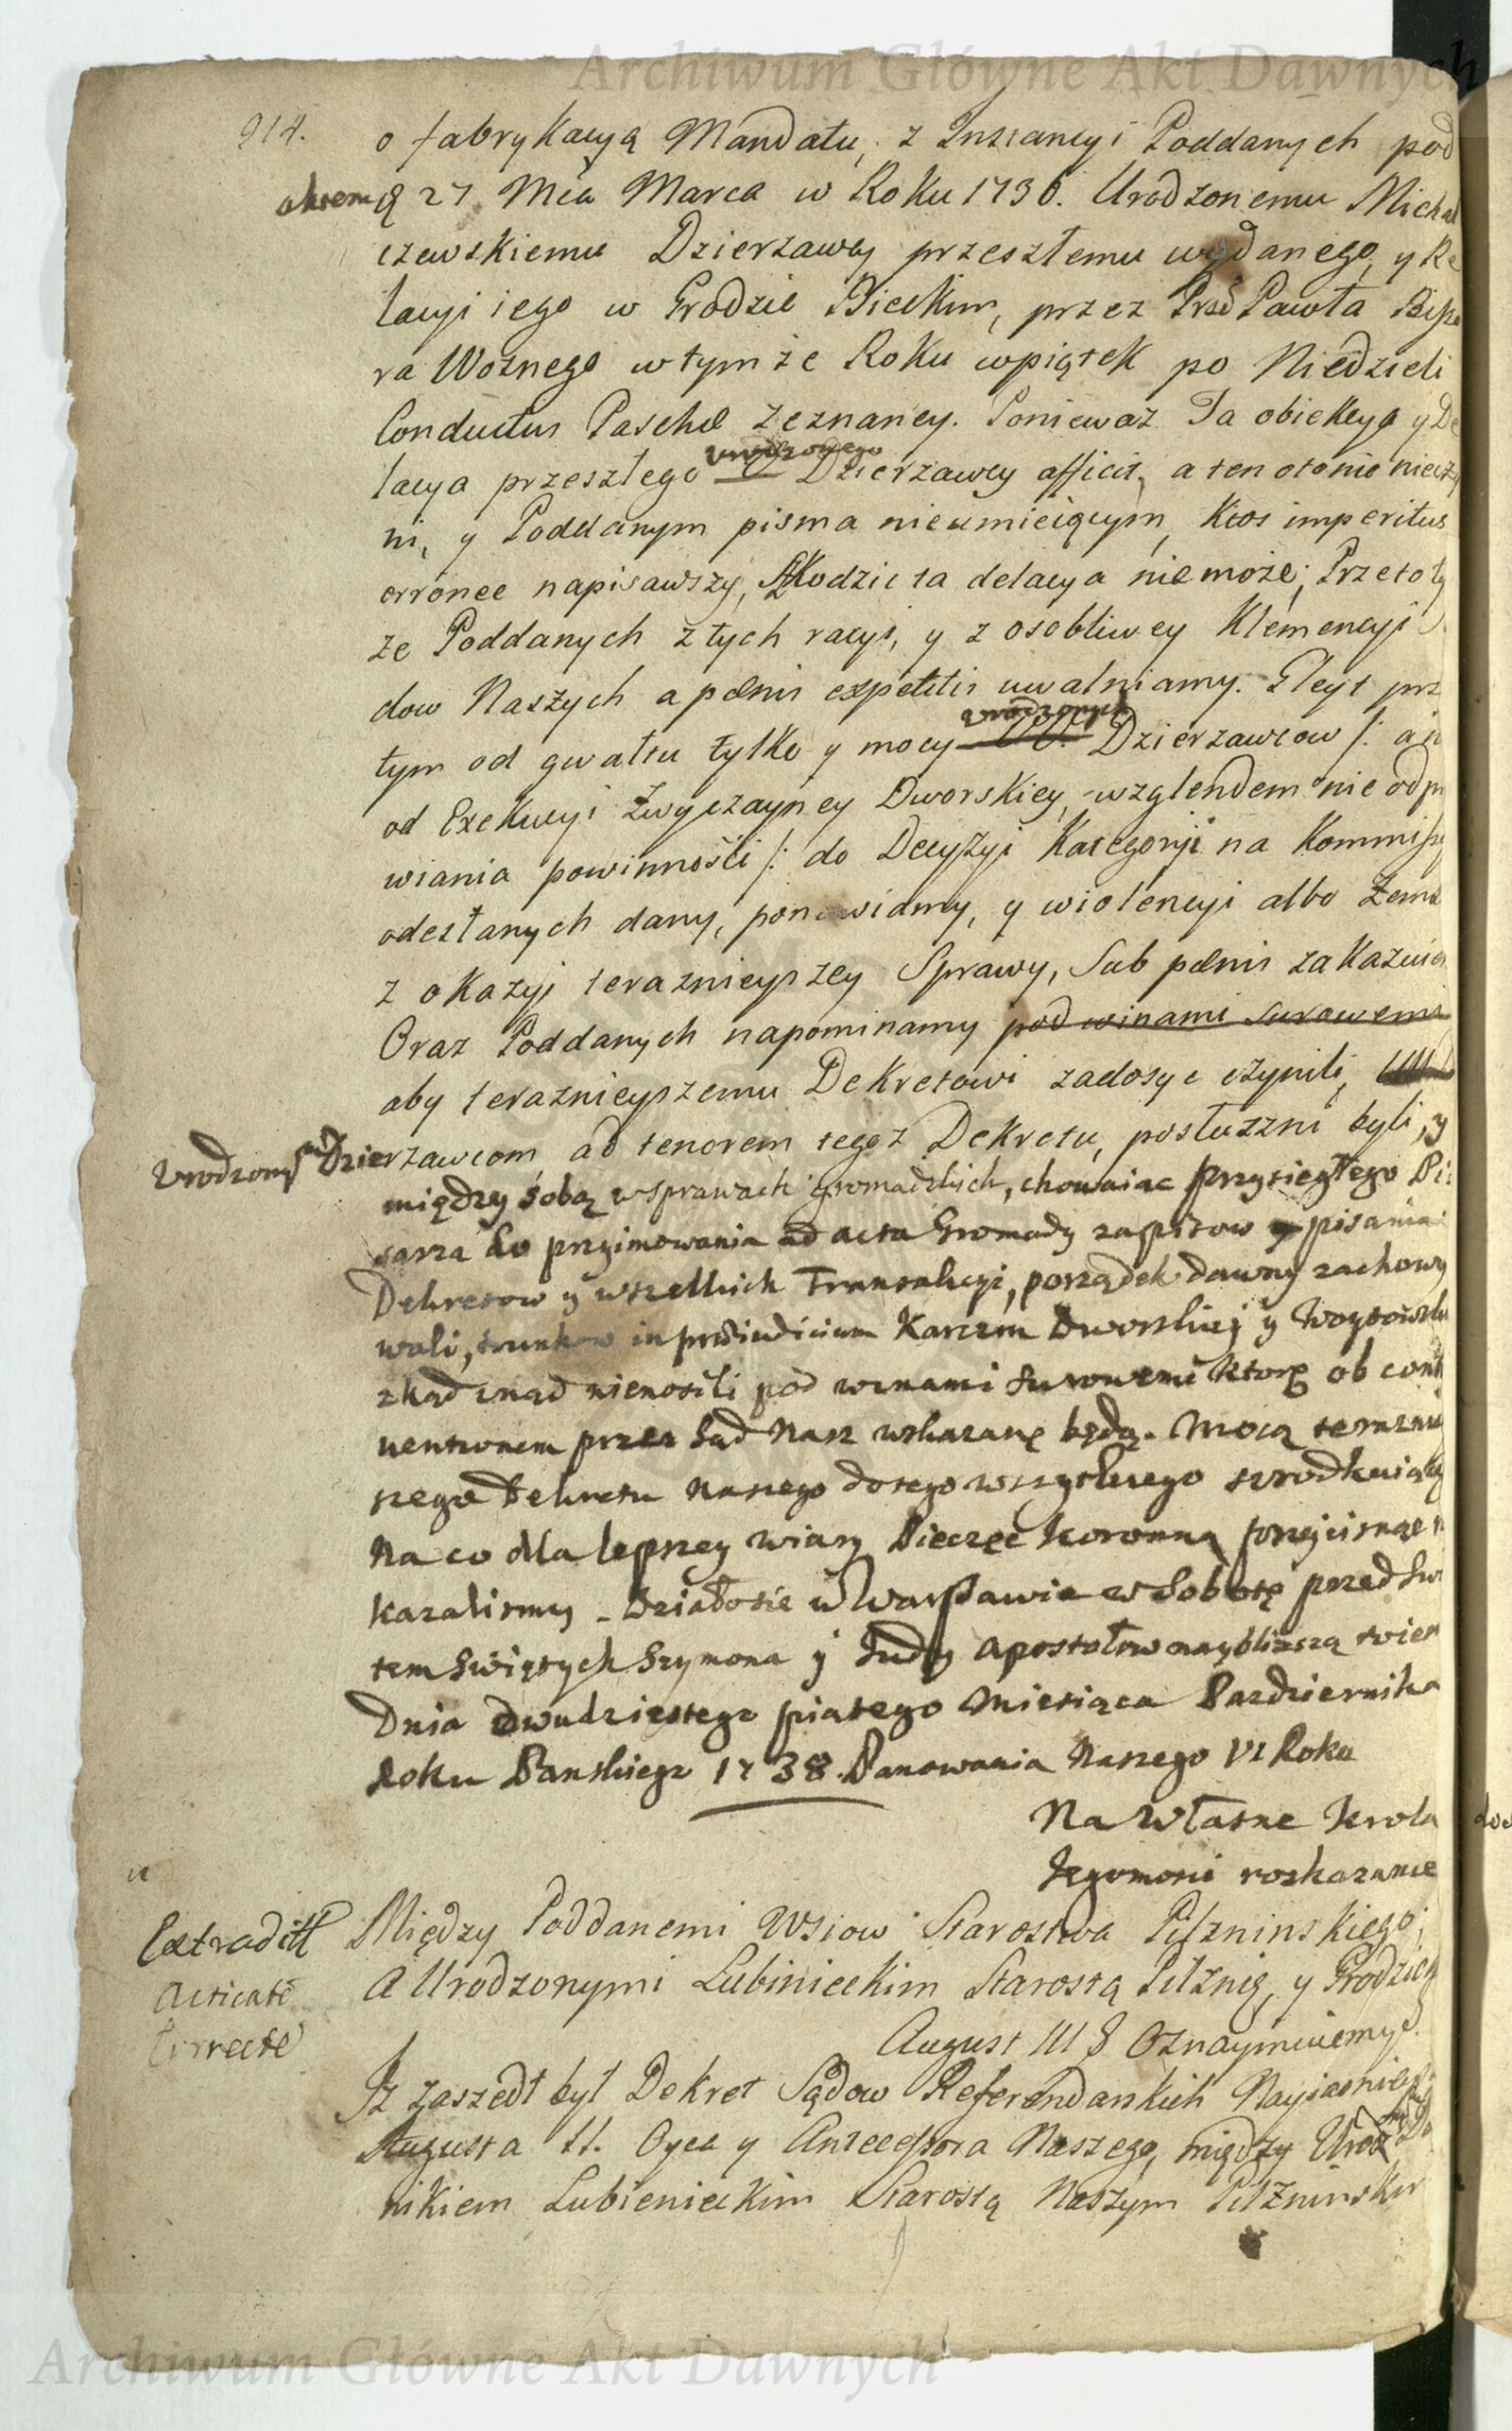 Archiwum Główne Akt Dawnych
914.
o fabrykacyą Mandatu, z Instancyi Poddanych pod
aktem 27 Mca Marca w Roku 1736. Urodzonemu Michal
czewskiemu Dzierzawcy przeszłemu wydanego, y Re
lacyi iego w Grodzie Bieckim, przez Pawła
ra Woznego wtymże Roku wpiątek po Niedzieli
Conductus Paschæ zeznaney. Poniewaz Ta obiekcya y De
urodzonego
lacya przeszłego Dzierzawcy afficit, a ten oto nie nieczy
ni, y Poddanym pisma nieumieiącym, ktos imperitus
erronee napisawszy, szkodzic ta delacya niemoże; Przeto ty
ze Poddanych z tych racyi, y z osobliwey Klemencyi
dow Naszych a pœnis expetitis uwalniamy. Gleyt prz
urodzonych
tym od gwałtu tylko y mocy UU. Dzierzawcow /: a n
od Exekucyi zwyczayney Dworskiey, wzglendem nie odpr
wiania powinności /: do Decyzyi Kategoryi na Kommissy
odesłanych dany, ponawiamy, y wiolencyi albo zems
z okazyi teraznieyszey Sprawy, Sub pœnis zakazuie
Oraz Poddanych napominamy pod winami surowemi
aby teraznieyszemu Dekretowi zadosyc czynili,
Urodzonym Dzierzawcom, ad tenorem tegoz Dekretu, posłuszni byli, y
między sobą w sprawach gromadzkich, chowaiac przysięgłego Pi
sarza do przyimowania ad acta Gromady zapisow y pisania
Dekretow y wszelkich Transakcyi, porządek dawny zachowy
wali, trunkow in præiudicium Karczm Dworskiey y Woytowsk
zkąd inąd nienosili pod winami surowemi ktore ob cont
uentionem przez Sąd Nasz wskazane będą. Mocą teraznie
szego Dekretu Naszego do tego wszystkiego
Na co dla lepszey wiary Pieczęc Koronną przycisnąc
kazalismy. Działosie w Warszawie w Sobotę przed Swi
tem Swiętych Szymona y Judy Apostołow naybliższą
Dnia dwudziestego piątego Miesiąca Pazdziernika
Roku Panskiego 1738. Panowania Naszego VI Roku
Na Własne Krola
Jegomosci rozkazanie
Extradit
Acticate
Correcte
Między Poddanemi Wsiow Starostwa Pilzninskiego,
A Urodzonymi Lubinieckim Starostą Pilznię, y Grodzick
August III Oznaymuiemy
Iz zaszedł był Dekret Sądow Referendarskich Nayiasniey
Augusta II. Oyca y Antecessora Naszego, między Urodz
nikiem Lubienieckim Starostą Naszym Pilzninskim
Archiwum Główne Akt Dawnych